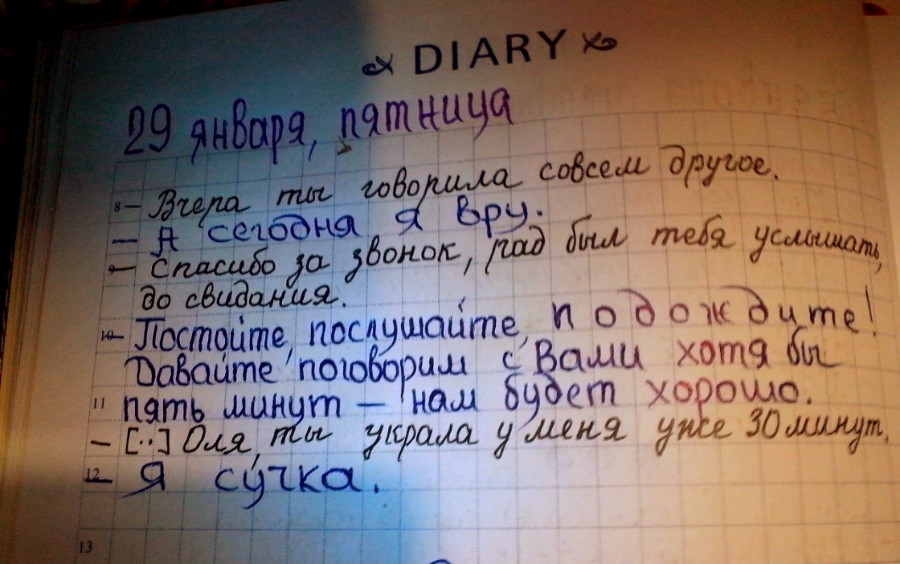 DIARY
29 января, пятница
8 — Вчера ты говорила совсем другое.
— А сегодня я вру.
9 — Спасибо за звонок, рад был тебя услышать,
до свидания.
10 — Постойте, послушайте, подождите!
Давайте поговорим с Вами хотя бы
11 пять минут — нам будет хорошо.
— [..] Оля, ты украла у меня уже 30 минут.
12 — Я сучка.
13